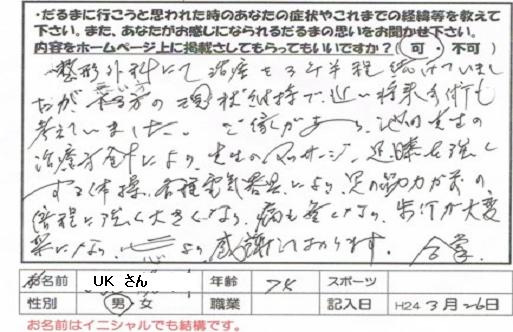 ・だるまに行こうと思われた時のあなたの症状やこれまでの経緯等を教えて
下さい。また、あなたがお感じになられるだるまの思いをお聞かせ下さい。
内容をホームページ上に掲載さしてもらってもいいですか？（可・不可）
整形外科にて治療を3年半程続けていまし
たが、の現状維持で、近い将来手術も
考えていました。ご縁があり、池田先生の
治療方針により、先生のマッサージ、足腰を強く
する体操、各種電気器具により、足の筋力が前の
倍程に強く大きくなり、痛も無くなり、歩行が大変
楽になり、心より感謝しております。合掌
お名前 UK さん 年齢 スポーツ
性別 男・女 職業 記入日 H24 3月26日
お名前はイニシャルでも結構です。